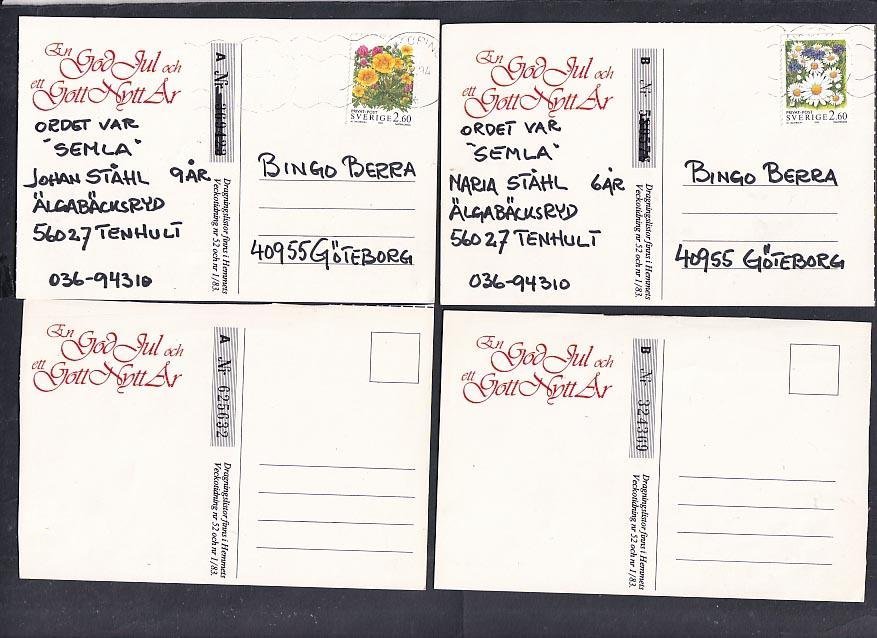 En
God Jul och
ett
Gott Nytt År
ORDET VAR
"SEMLA"
JOHAN STÅHL 9 ÅR
ÄLGABÄCKSRYD
56027 TENHULT
036-94310
A Nr
Dragningslistor finns i Hemmets
Veckotidning nr 52 och nr 1/83.
PRIVAT-POST
SVERIGE 2.60
BINGO BERRA
40955 GÖTEBORG
En
God Jul och
ett
Gott Nytt År
ORDET VAR
"SEMLA"
MARIA STÅHL 6 ÅR
ÄLGABÄCKSRYD
56027 TENHULT
036-94310
B Nr
Dragningslistor finns i Hemmets
Veckotidning nr 52 och nr 1/83.
PRIVAT-POST
SVERIGE 2.60
BINGO BERRA
40955 GÖTEBORG
En
God Jul och
ett
Gott Nytt År
A Nr 625632
Dragningslistor finns i Hemmets
Veckotidning nr 52 och nr 1/83.
En
God Jul och
ett
Gott Nytt År
B Nr 324369
Dragningslistor finns i Hemmets
Veckotidning nr 52 och nr 1/83.